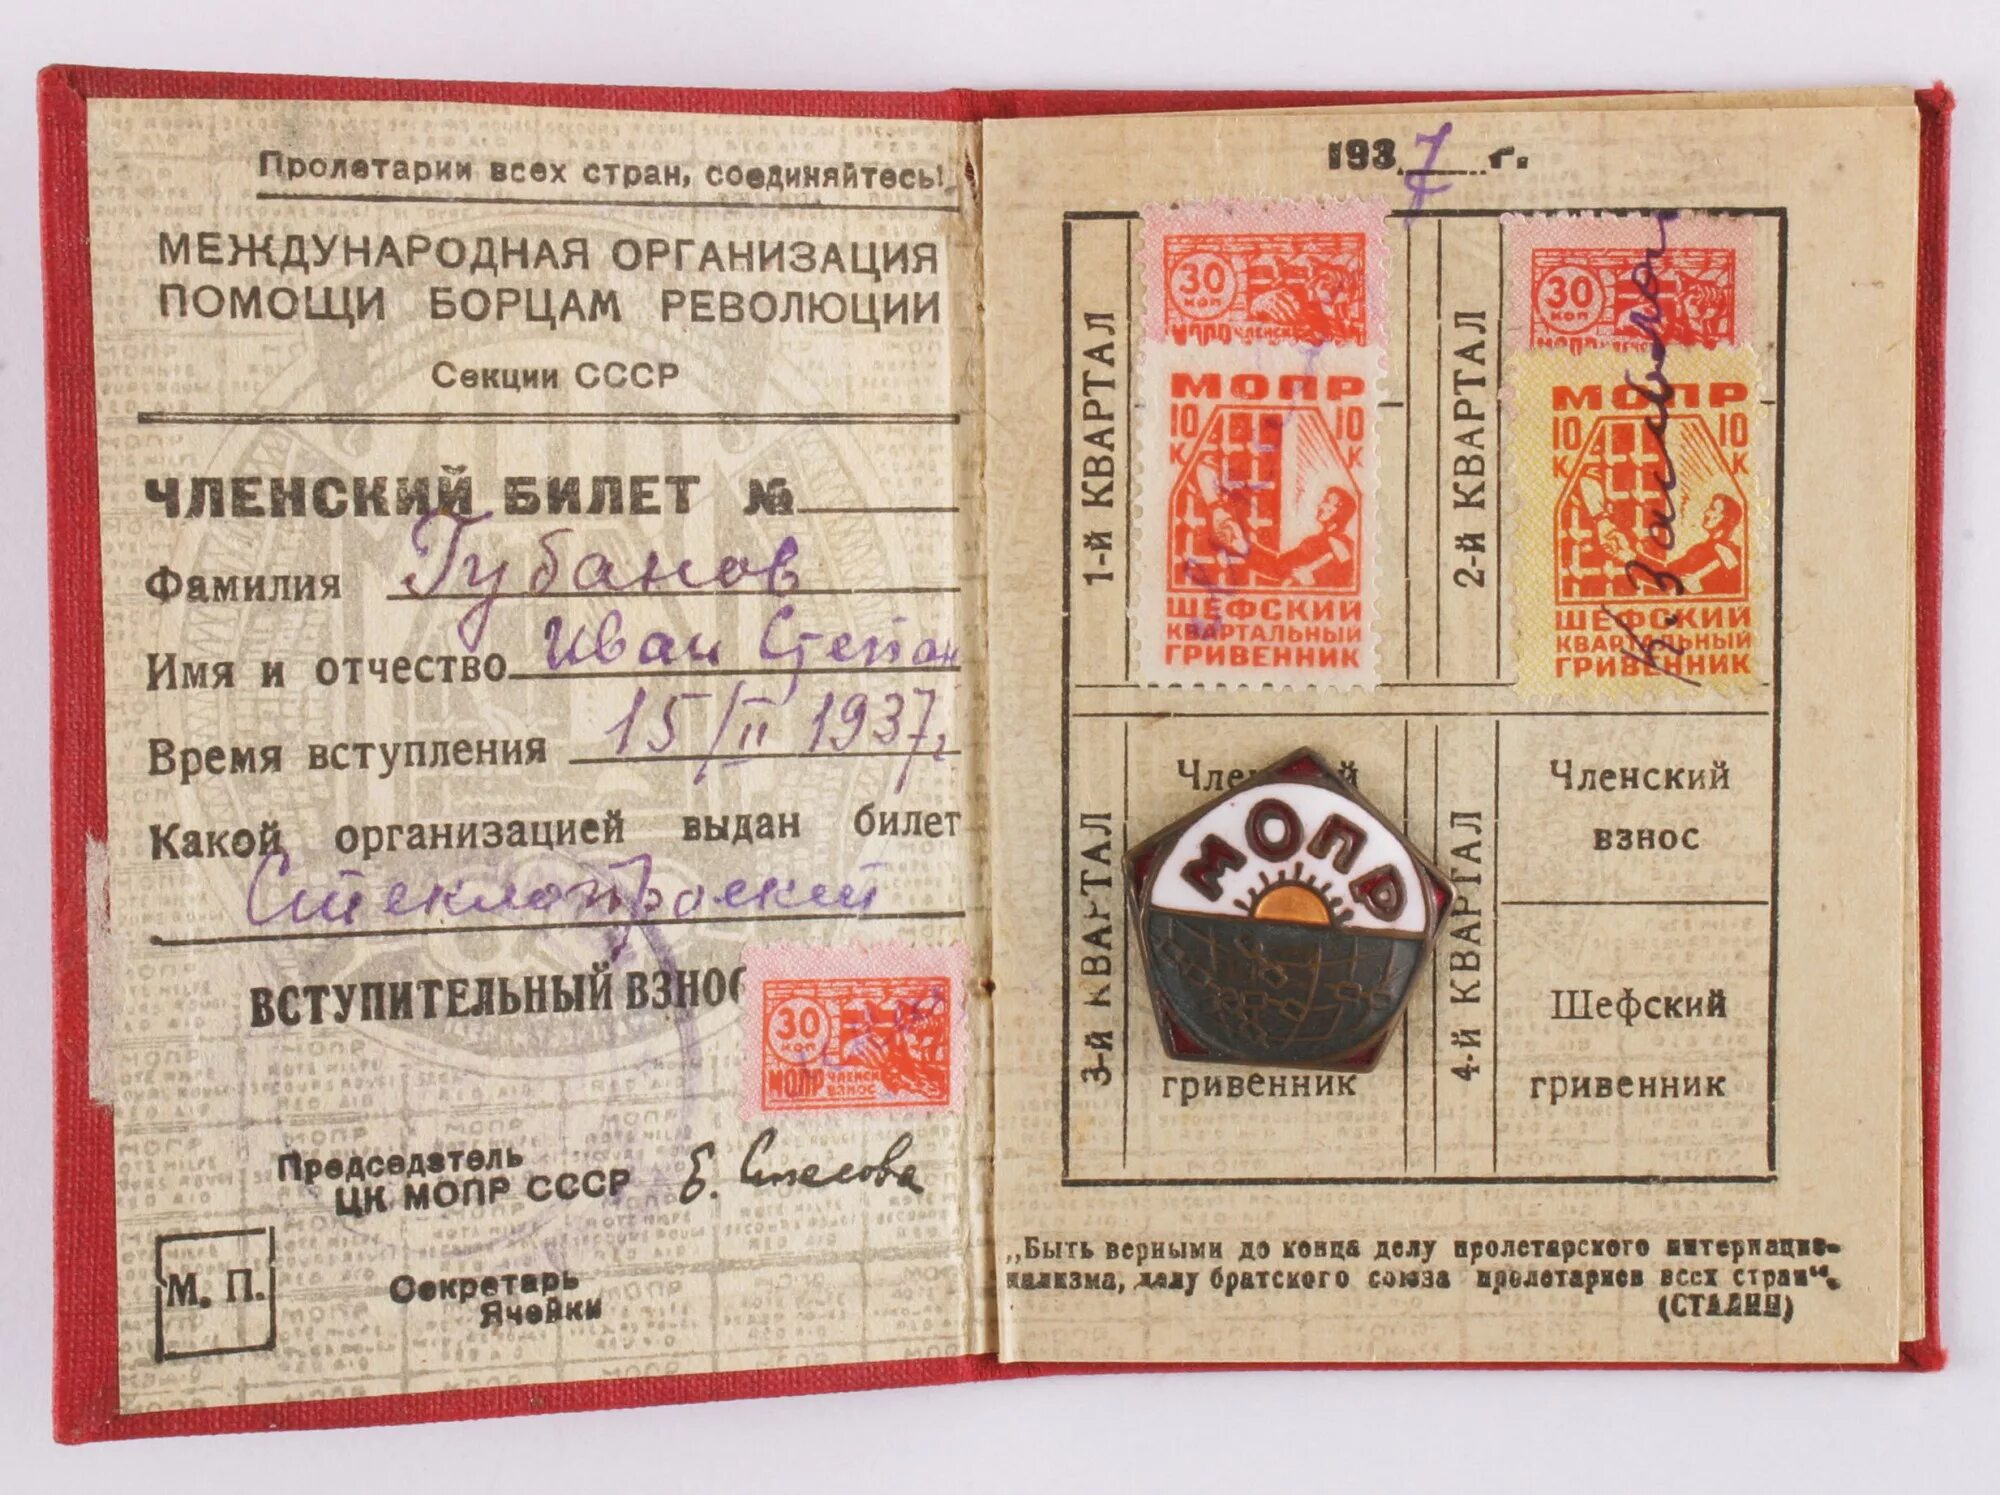 Пролетарии всех стран, соединяйтесь!
МЕЖДУНАРОДНАЯ ОРГАНИЗАЦИЯ
ПОМОЩИ БОРЦАМ РЕВОЛЮЦИИ
Секции СССР
ЧЛЕНСКИЙ БИЛЕТ №
Фамилия Губанов
Имя и отчество Иван Степан
Время вступления 15/II 1937г
Какой организацией выдан билет
ВСТУПИТЕЛЬНЫЙ ВЗНОС
30
коп
МОПР ЧЛЕНСК
ВЗНОС
Председатель
ЦК МОПР СССР Е. Стасова
М. П.
Секретарь
Ячейки
1937 г.
1-й КВАРТАЛ
30
коп
МОПР ЧЛЕНСК
МОПР
10 10
К К
ШЕФСКИЙ
КВАРТАЛЬНЫЙ
ГРИВЕННИК
2-й КВАРТАЛ
30
коп
МОПР
МОПР
10 10
К К
ШЕФСКИЙ
КВАРТАЛЬНЫЙ
ГРИВЕННИК
3-й КВАРТАЛ
МОПР
гривенник
4-й КВАРТАЛ
Членский
взнос
Шефский
гривенник
„Быть верными до конца делу пролетарского интернацио-
нализма, делу братского союза пролетариев всех стран“.
(СТАЛИН)